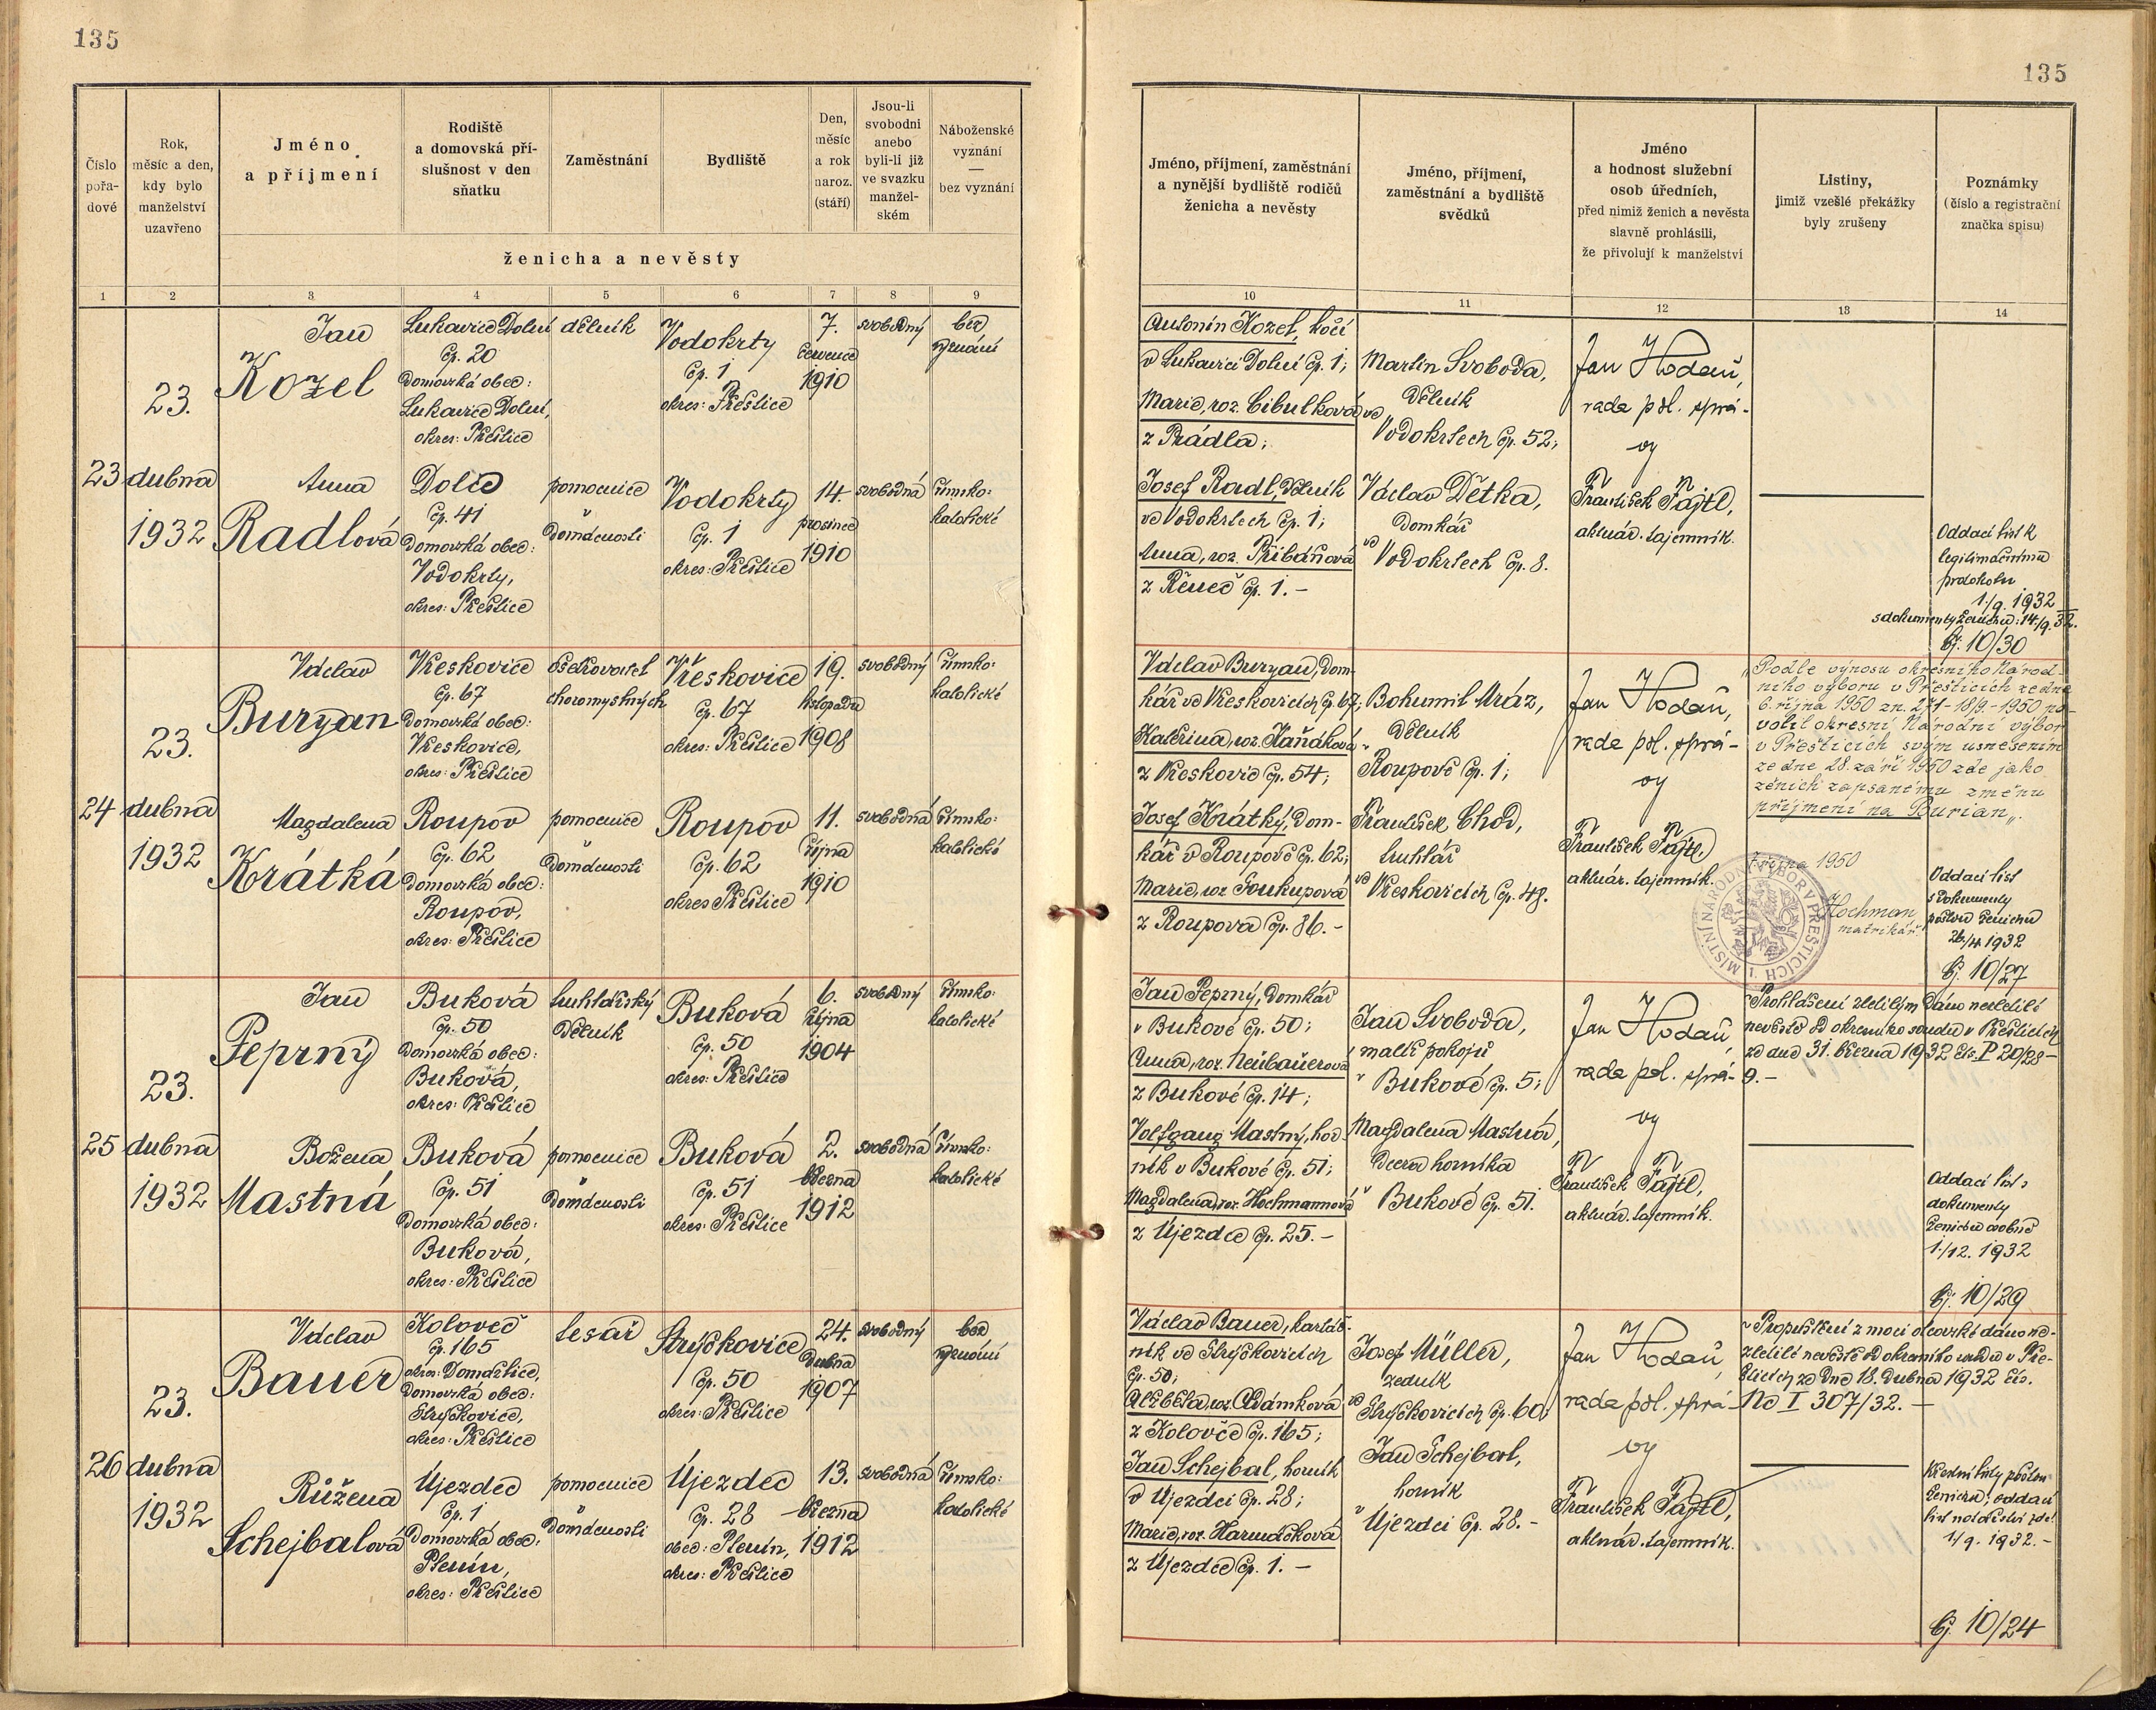 135
135
Číslo pořa-dové
Rok, měsíc a den, kdy bylo manželství uzavřeno
Jméno a příjmení
Rodiště a domovská pří-slušnost v den sňatku
Zaměstnání
Bydliště
Den, měsíc a rok naroz. (stáří)
Jsou-li svobodni anebo byli-li již ve svazku manžel-ském
Náboženské vyznání — bez vyznání
ženicha a nevěsty
Jméno, příjmení, zaměstnání a nynější bydliště rodičů ženicha a nevěsty
Jméno, příjmení, zaměstnání a bydliště svědků
Jméno a hodnost služební osob úředních, před nimiž ženich a nevěsta slavně prohlásili, že přivolují k manželství
Listiny, jimiž vzešlé překážky byly zrušeny
Poznámky (číslo a registrační značka spisu)
1 2 3 4 5 6 7 8 9 10 11 12 13 14
23
23. dubna 1932
Jan Kozel
Lukavice Dolní
čp. 20
Domovská obec:
Lukavice Dolní,
okres: Přeštice
dělník
Vodokrty
čp. 1
okres: Přeštice
7. července 1910
svobodný
bez vyznání
Anna Radlová
Dolce
čp. 41
Domovská obec:
Vodokrty,
okres: Přeštice
pomocnice
v domácnosti
Vodokrty
čp. 1
okres: Přeštice
14 prosince 1910
svobodná
římsko:
katolické
Antonín Kozel, kočí
v Lukavici Dolní čp. 1;
Marie, roz. Cibulková
z Prádla;
Josef Radl, dělník
ve Vodokrtech čp. 1;
Anna, roz. Přibáňová
z Řeneč čp. 1.-
Martin Svoboda,
dělník
ve Vodokrtech čp. 52;
Václav Dětka,
domkář
ve Vodokrtech čp. 8.
Jan Hodaň,
rada pol. sprá-
vy
František Fajtl,
aktuár. tajemník.
Oddací list k
legitimačnímu
protokolu
1./9. 1932
s dokumenty ženicha: 14/9. 32.
čj. 10/30
24
23. dubna 1932
Václav Buryan
Vřeskovice
čp. 67
Domovská obec:
Vřeskovice,
okres: Přeštice
ošetřovatel
choromyslných
Vřeskovice
čp. 67
okres: Přeštice
19. listopadu 1908
svobodný
římsko:
katolické
Magdalena Krátká
Roupov
čp. 62
Domovská obec:
Roupov,
okres: Přeštice
pomocnice
v domácnosti
Roupov
čp. 62
okres Přeštice
11. října 1910
svobodná
římsko:
katolické
Václav Buryan, dom-
kář ve Vřeskovicích čp. 67;
Kateřina, roz. Haňáková
z Vřeskovic čp. 54;
Josef Krátký, dom-
kář v Roupově čp. 62;
Marie, roz. Soukupová
z Roupova čp. 86.-
Bohumil Mráz,
dělník
v Roupově čp. 1;
František Chod,
truhlář
ve Vřeskovicích čp. 48.
Jan Hodaň,
rada pol. sprá-
vy
František Fajtl,
aktuár. tajemník.
„Podle výnosu okresního Národ-
ního výboru v Přešticích ze dne
6. října 1950 zn. 271-18/9-1950 po-
volil okresní Národní výbor
v Přešticích svým usnesením
ze dne 28. září 1950 zde jako
ženich zapsanému změnu
příjmení na Burian„.
října 1950
Hochman
matrikář
MÍSTNÍ NÁRODNÍ VÝBOR V PŘEŠTICÍCH
Oddací list
s dokumenty
poštou ženichu
26./4. 1932
čj. 10/27
25
23. dubna 1932
Jan Peprný
Buková
čp. 50
Domovská obec:
Buková,
okres: Přeštice
truhlářský
dělník
Buková
čp. 50
okres: Přeštice
6. října 1904
svobodný
římsko:
katolické
Božena Mastná
Buková
čp. 51
Domovská obec:
Buková,
okres: Přeštice
pomocnice
v domácnosti
Buková
čp. 51
okres: Přeštice
2. března 1912
svobodná
římsko:
katolické
Jan Peprný, domkář
v Bukové čp. 50;
Anna, roz. Neubauerová
z Bukové čp. 14;
Volfgang Mastný, hor-
ník v Bukové čp. 51;
Magdalena, roz. Hochmannová
z Újezdce čp. 25.-
Jan Svoboda,
malíř pokojů
v Bukové čp. 5;
Magdalena Mastná,
dcera horníka
v Bukové čp. 51.
Jan Hodaň,
rada pol. sprá-
vy
František Fajtl,
aktuár. tajemník.
Prohlášení zletilým dáno nezletilé
nevěstě od okresního soudu v Přešticích
ze dne 31. března 1932 čís. P 20/28-
9.-
Oddací list s
dokumenty
ženichu osobně
1./12. 1932
čj. 10/29
26
23. dubna 1932
Václav Bauer
Koloveč
čp. 165
okres: Domažlice,
Domovská obec:
Strýčkovice,
okres: Přeštice
tesař
Strýčkovice
čp. 50
okres: Přeštice
24. dubna 1907
svobodný
bez vyznání
Růžena Schejbalová
Újezdec
čp. 1
Domovská obec:
Plenín,
okres: Přeštice
pomocnice
v domácnosti
Újezdec
čp. 28
obec: Plenín,
okres: Přeštice
13. března 1912
svobodná
římsko:
katolické
Václav Bauer, kartáč-
ník ve Strýčkovicích
čp. 50;
Alžběta, roz. Adámková
z Kolovče čp. 165;
Jan Schejbal, horník
v Újezdci čp. 28;
Marie, roz. Harmáčková
z Újezdce čp. 1.-
Josef Müller,
zedník
ve Strýčkovicích čp. 60;
Jan Schejbal,
horník
v Újezdci čp. 28.-
Jan Hodaň,
rada pol. sprá-
vy
František Fajtl,
aktuár. tajemník.
Propuštění z moci otcovské dáno ne-
zletilé nevěstě od okresního soudu v Pře-
šticích ze dne 18. dubna 1932 čís.
Nc I 307/32.-
Křestní listy poštou
ženichu; oddací
list zde!
1/9. 1932.-
čj. 10/24